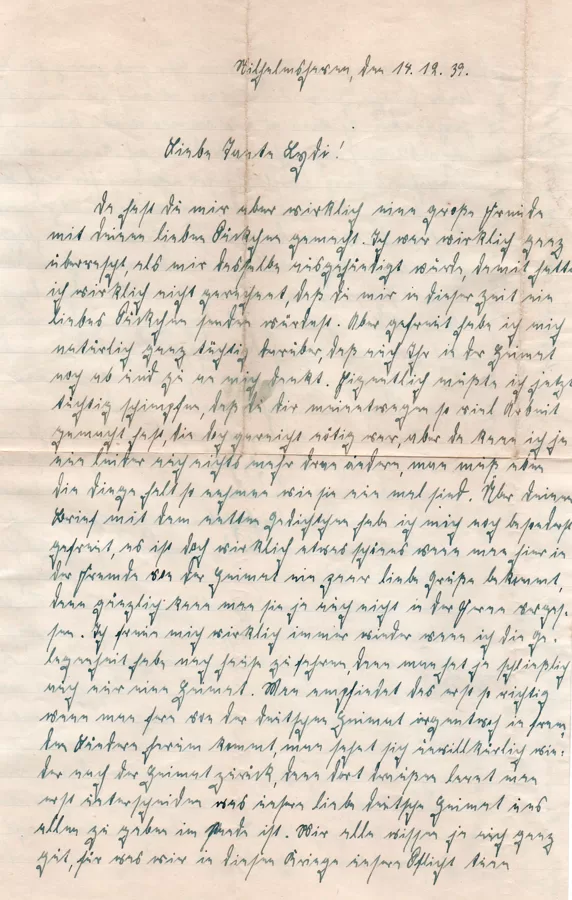 Wilhelmshaven, den 14.12.39.
Liebe Tante Lydi!
Da hast Du mir aber wirklich eine große Freude
mit deinen lieben Päckchen gemacht. Ich war wirklich ganz
überrascht, als mir dasselbe ausgehändigt wurde, damit hatte
ich wirklich nicht gerechnet, daß du mir in dieser Zeit ein
liebes Päckchen senden würdest. Aber gefreut habe ich mich
natürlich ganz tüchtig darüber, daß auch Ihr in der Heimat
noch ab und zu an mich denkt. Eigentlich müßte ich jetzt
tüchtig schimpfen, daß du dir meinetwegen so viel Arbeit
gemacht hast, die doch garnicht nötig war, aber da kann ich ja
nun leider auch nichts mehr dran ändern, man muß eben
die Dinge halt so nehmen wie sie nun mal sind. Über deinen
Brief mit dem netten Gedichtchen habe ich mich noch besonders
gefreut, es ist doch wirklich etwas schönes wenn man hier in
der Fremde von der Heimat ein paar liebe Grüße bekommt,
denn gänzlich kann man sie ja auch nicht in der Ferne verges-
sen. Ich freue mich wirklich immer wieder wenn ich die Ge-
legenheit habe nach hause zu fahren, denn man hat ja schließlich
auch nur eine Heimat. Man empfindet das erst so richtig
wenn man fern von der deutschen Heimat irgentwoh in frem-
den Ländern herum kommt, man sehnt sich unwillkürlich wie-
der nach der Heimat zurück, denn dort draußen lernt man
erst unterscheiden was unsere liebe deutsche Heimat uns
allen zu geben im Stande ist. Wir alle wissen ja auch ganz
gut, für was wir in diesem Kriege unsere Pflicht tuen